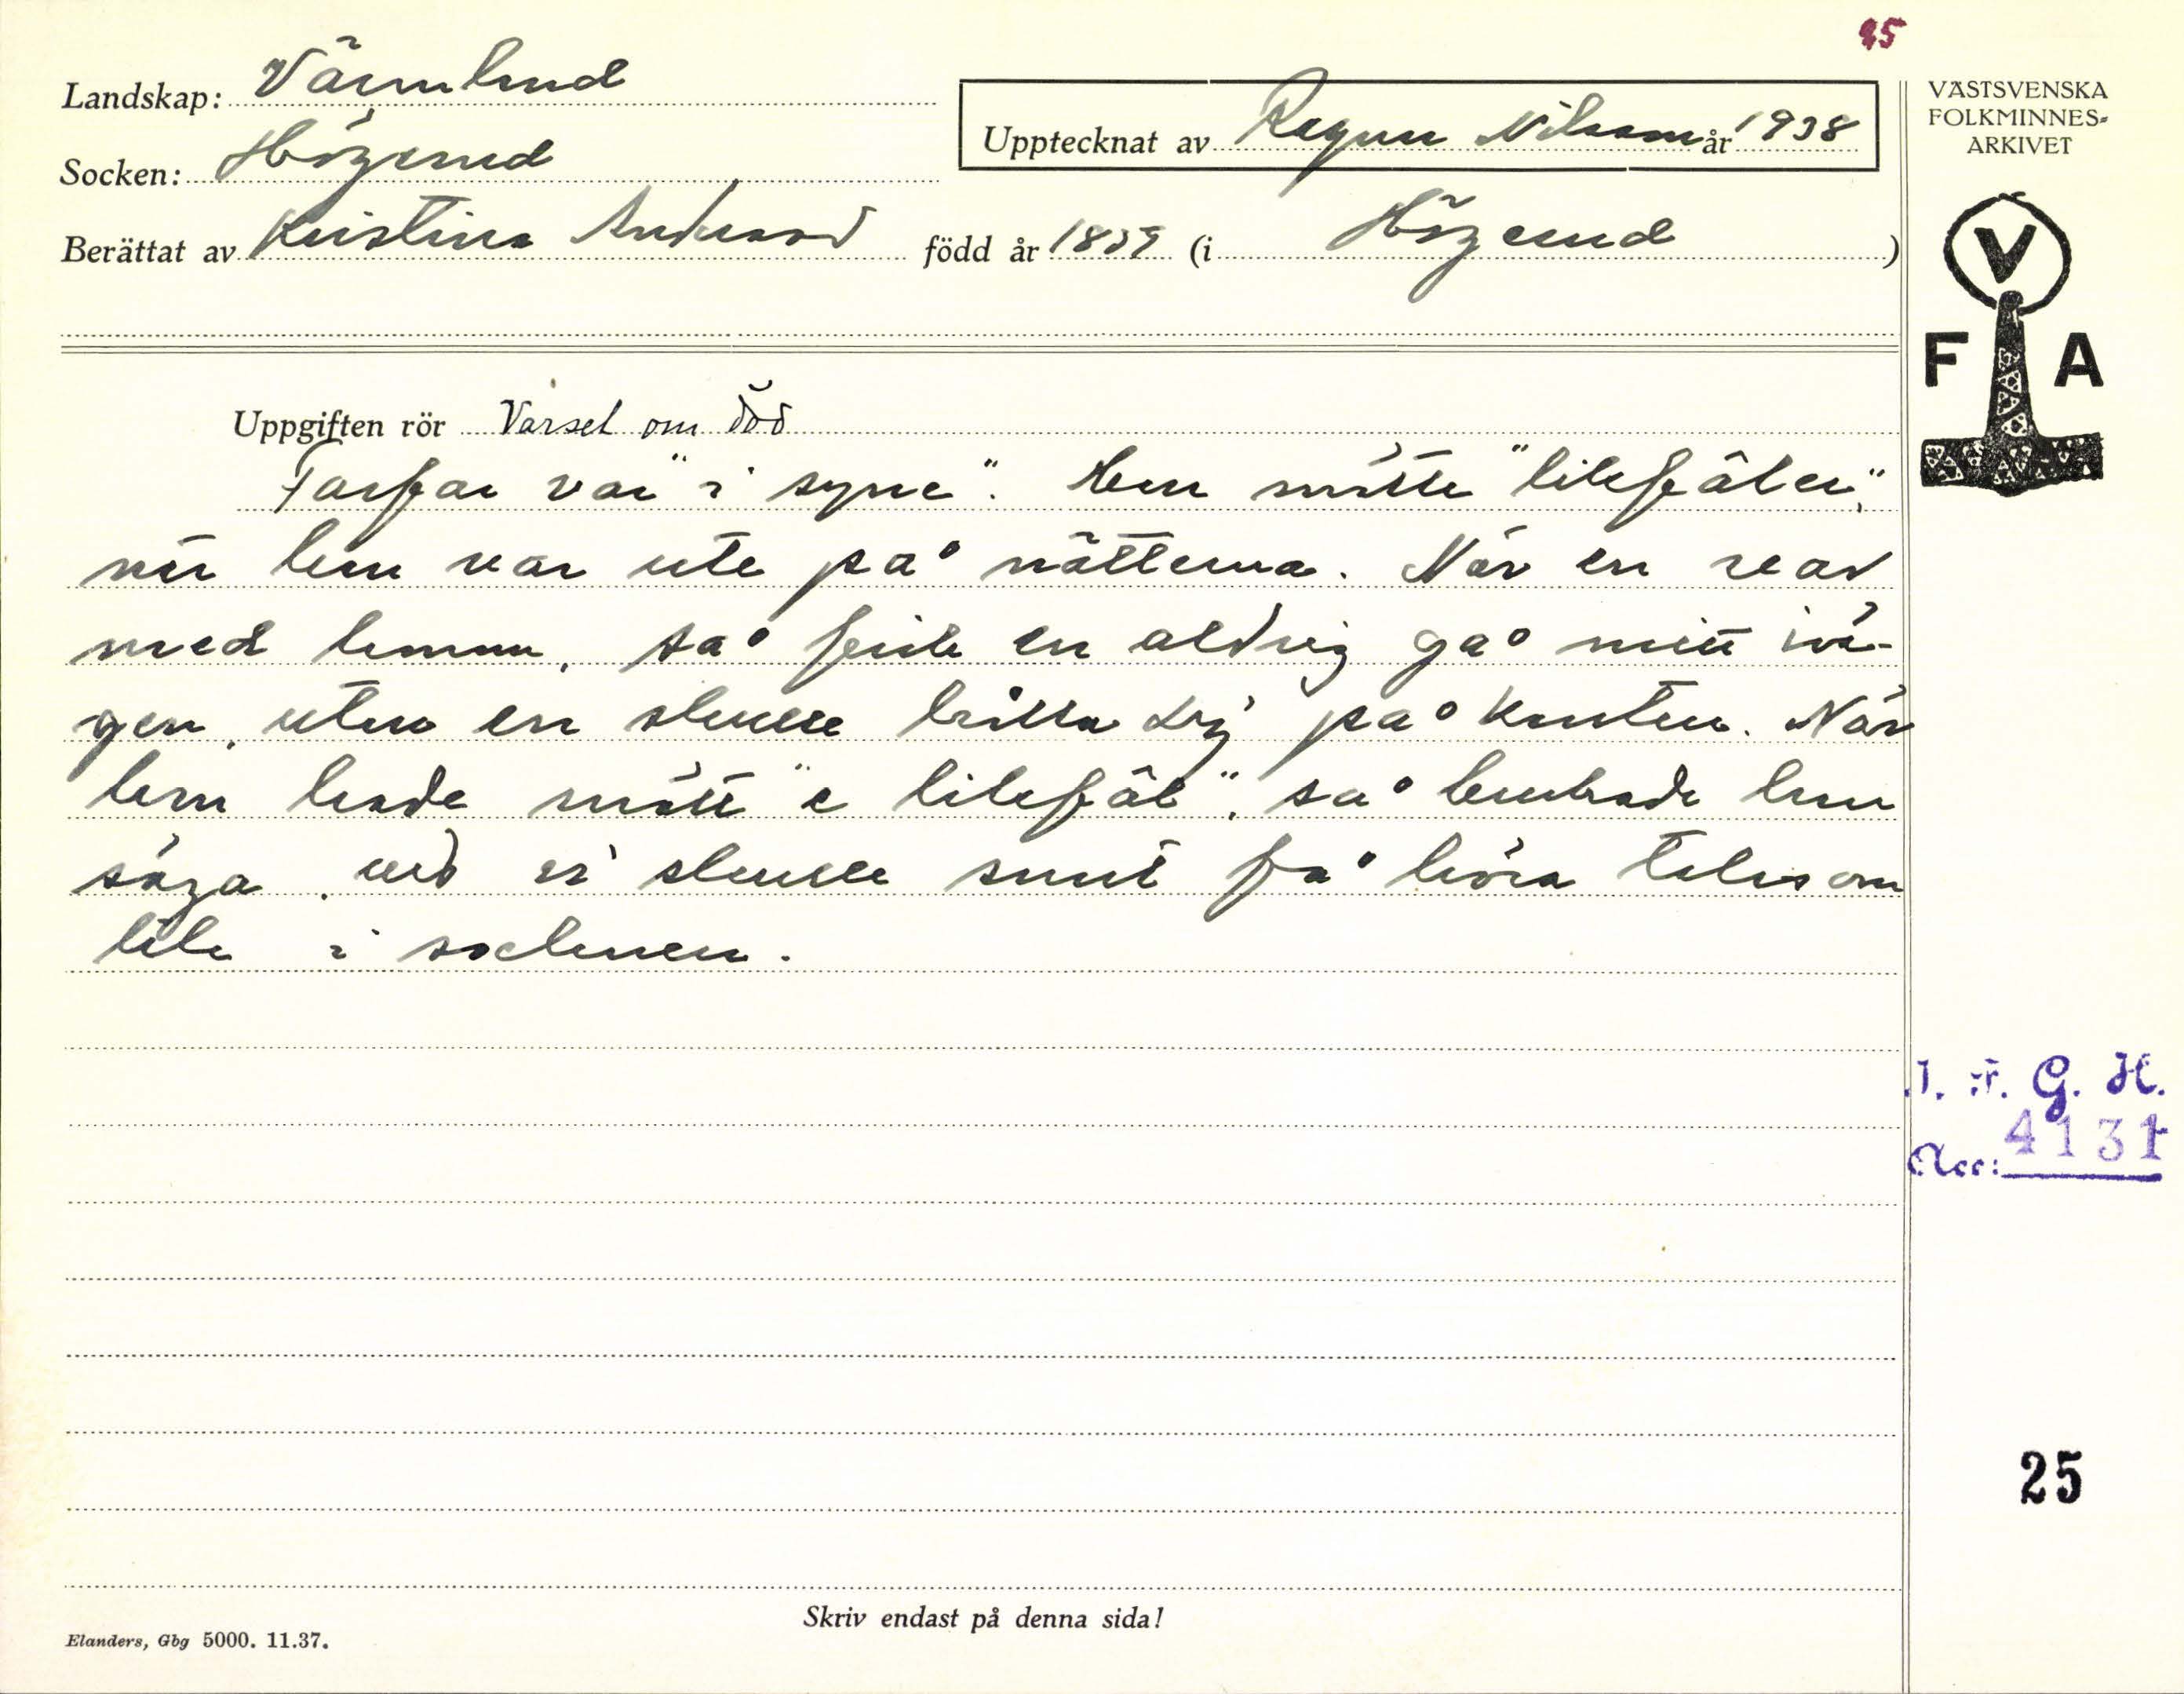 95
Landskap: Värmland
Socken: Högerud
Upptecknat av Ragnar Nilsson år 1938
Berättat av Kristina Andersson född år 1839 (i Högerud)
VÄSTSVENSKA
FOLKMINNES-
ARKIVET
V
F A
Uppgiften rör Varsel om död
Farfar var "i syne". Han mötte "likfäler",
när han var ute på nätterna. När en var
med honom, så feck en aldrig gå mitt i vä-
gen, utan en skulle hålla sig på kanten. När
han hade mött "e likfäl", så brukade han
säga, att vi skulle snart få höra talas om
lik i socknen.
I. F. G. H.
Acc: 4131
25
Skriv endast på denna sida!
Elanders, Gbg 5000. 11.37.